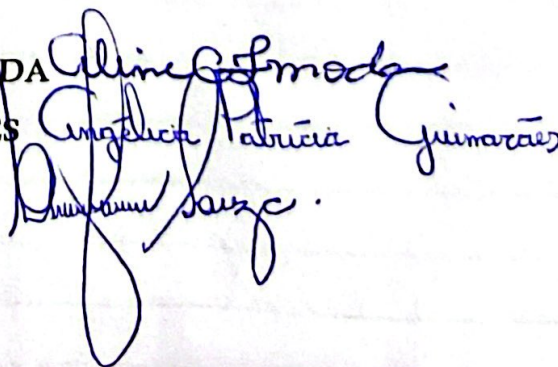 DA Aline
ES Angélica Patrícia Guimarães
Souza.